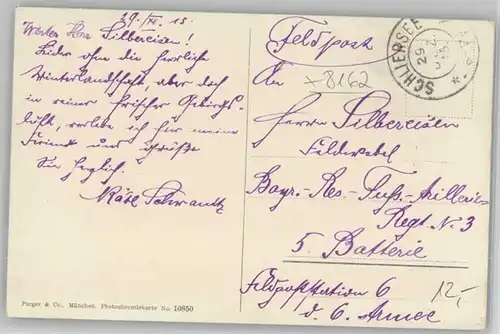 29./XII. 15.
Werter Herr Silbereisen!
Leider ohne die herrliche
Winterlandschaft, aber doch
in reiner frischer Gebirgs-
luft, verlebe ich hier meine
und grüße
Sie herzlich.
Käte Schwantz
Feldpost
SCHLIERSEE
29 DEZ 15
An
x8162
Herrn Silbereisen
Feldwebel
Bayr.-Res.-Fuß-Artillerie-
Regt. N. 3
5. Batterie
Feldpoststation 6
d. 6. Armee
12,-
Purger & Co., München. Photochromiekarte No. 10850